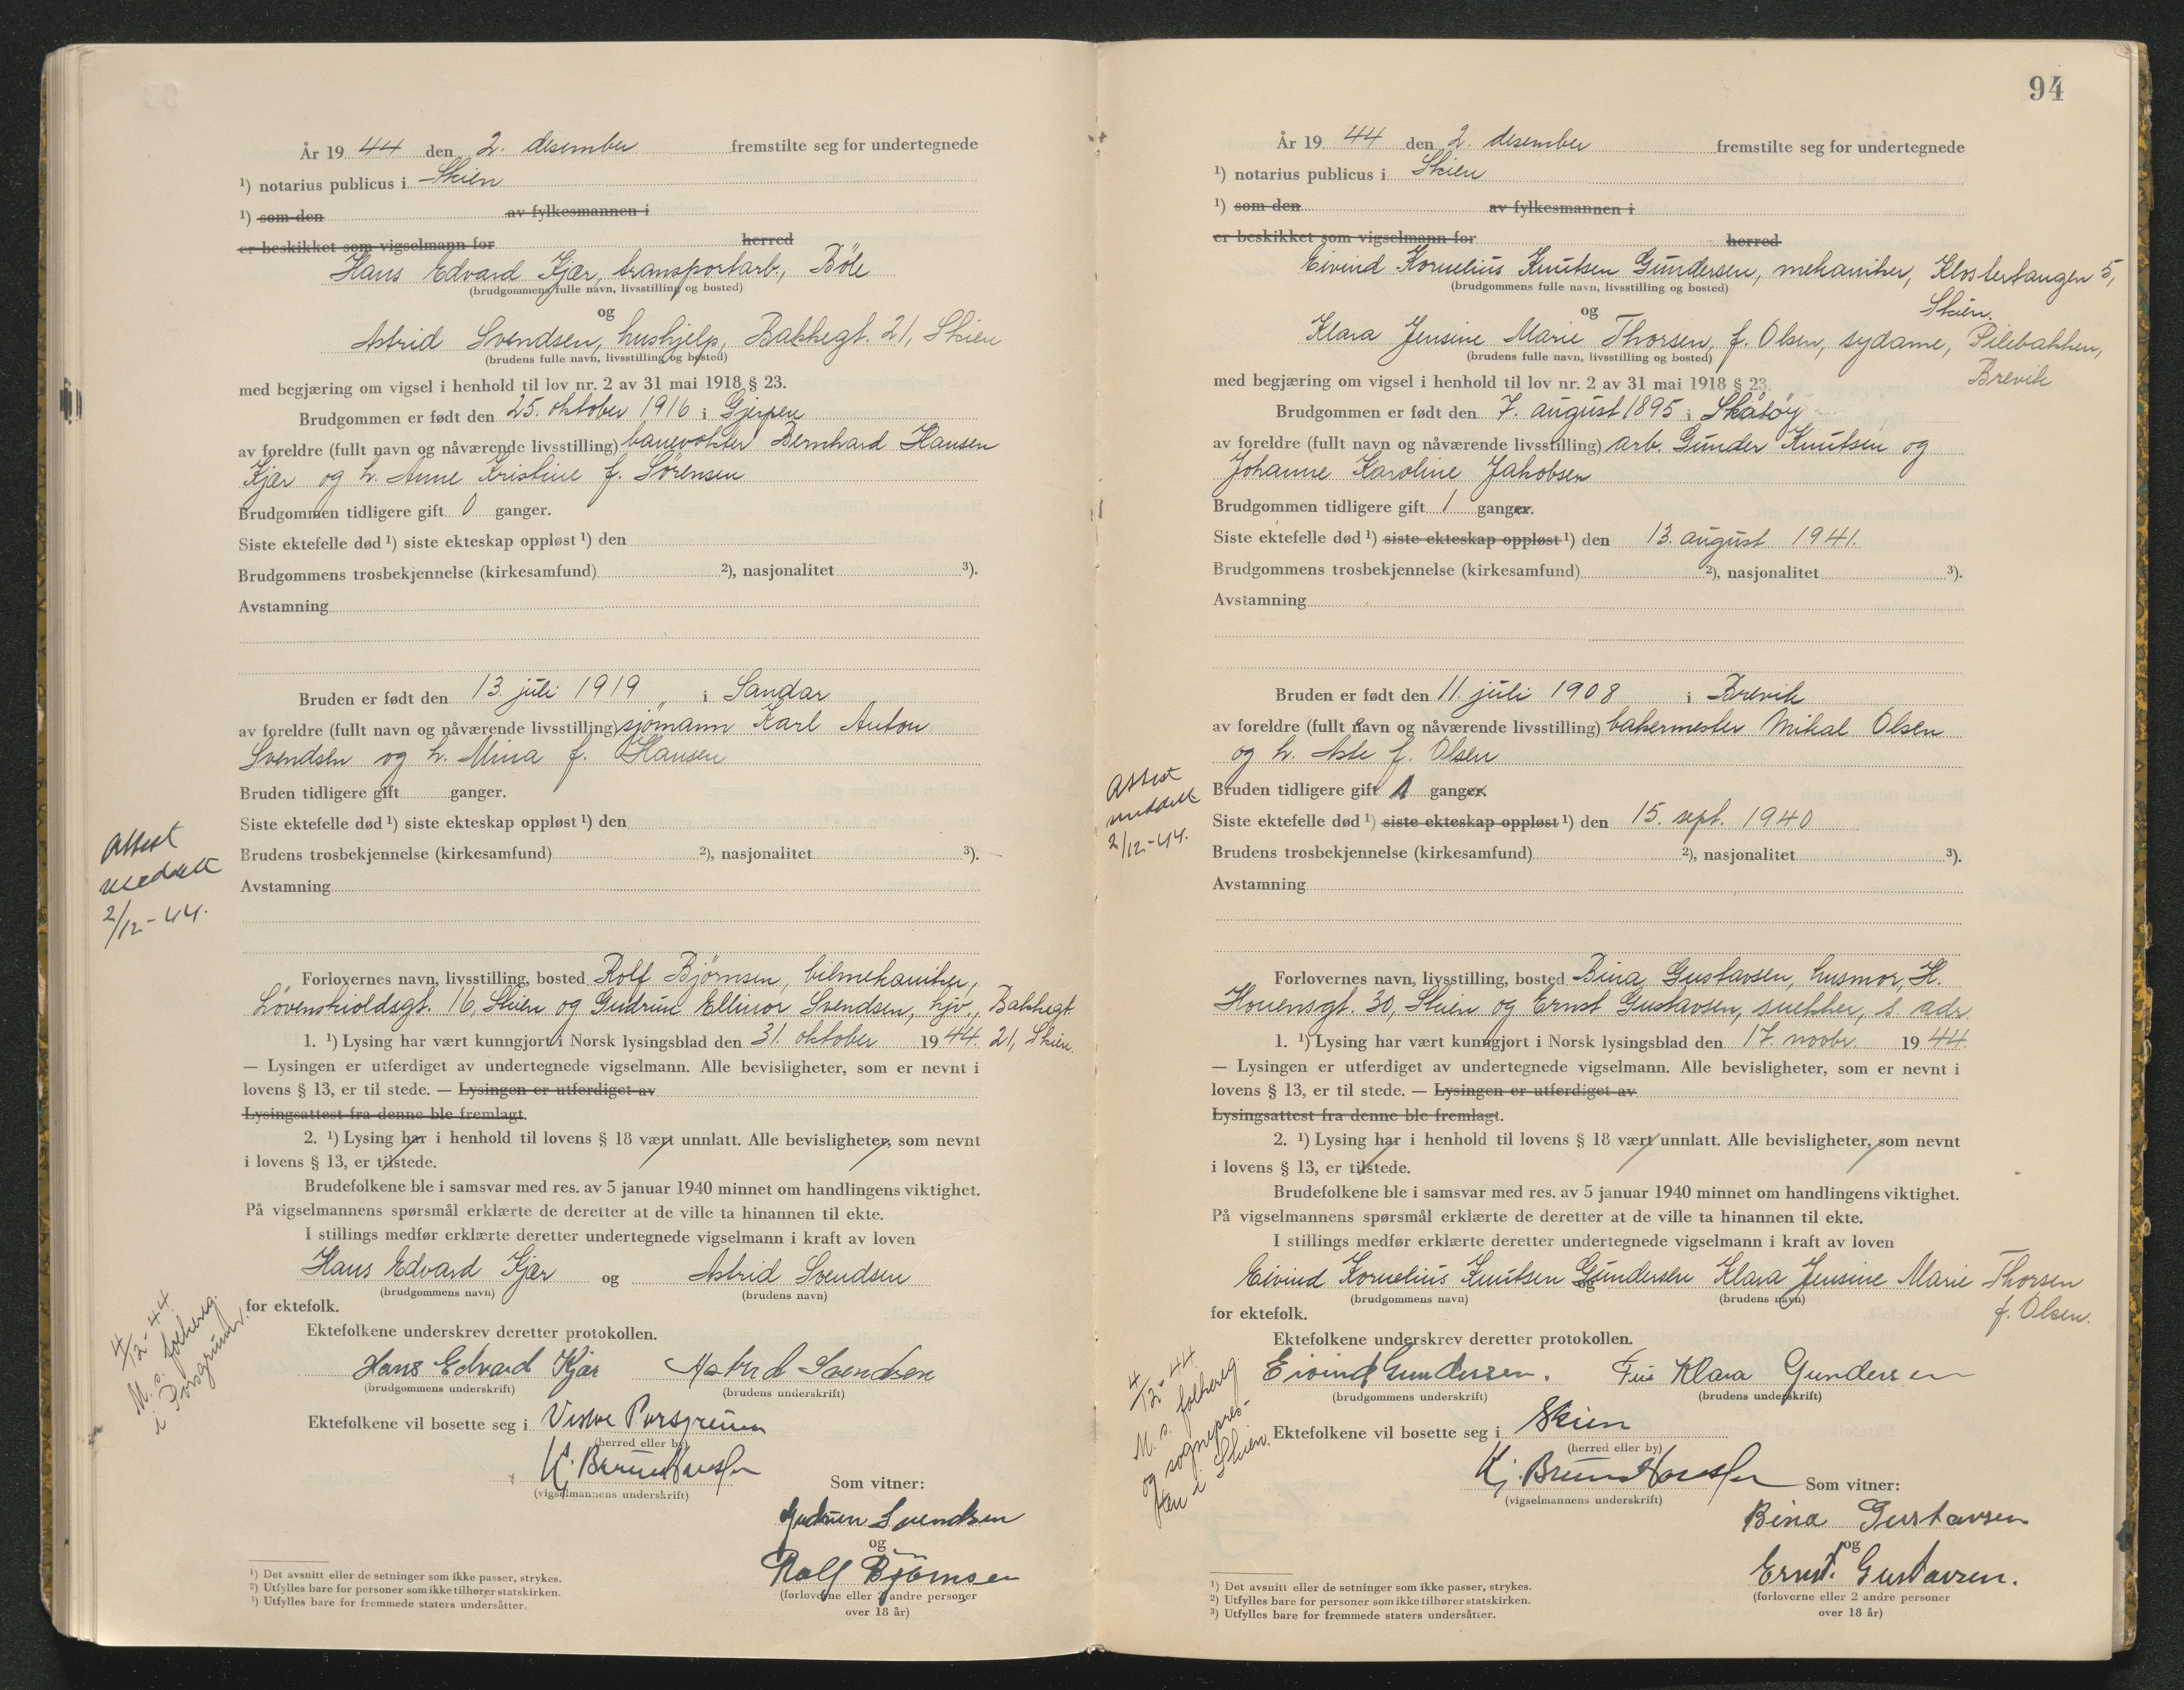 År 19 44 den 2. desember fremstilte seg for undertegnede
¹) notarius publicus i Skien
¹) som den av fylkesmannen i
er beskikket som vigselmann for herred
Hans Edvard Kjær, transportarb., Böle
(brudgommens fulle navn, livsstilling og bosted)
og
Astrid Svendsen, hushjelp, Bakkegt. 21, Skien
(brudens fulle navn, livsstilling og bosted)
med begjæring om vigsel i henhold til lov nr. 2 av 31 mai 1918 § 23.
Brudgommen er født den 25. oktober 1916 i Gjerpen
av foreldre (fullt navn og nåværende livsstilling) banevokter Bernhard Hansen
Kjær og h. Anne Kristine f. Sörensen
Brudgommen tidligere gift 0 ganger.
Siste ektefelle død ¹) siste ekteskap oppløst ¹) den
Brudgommens trosbekjennelse (kirkesamfund) ²), nasjonalitet ³).
Avstamning
Bruden er født den 13. juli 1919 i Sandar
av foreldre (fullt navn og nåværende livsstilling) sjömann Karl Anton
Svendsen og h. Mina f. Hansen
Bruden tidligere gift ganger.
Siste ektefelle død ¹) siste ekteskap oppløst ¹) den
Attest
meddelt
2/12-44.
Brudens trosbekjennelse (kirkesamfund) ²), nasjonalitet ³).
Avstamning
Forlovernes navn, livsstilling, bosted Rolf Björnsen, bilmekaniker,
Lövenskioldsgt. 16, Skien og Gudrun Ellinor Svendsen, hjv., Bakkegt.
21, Skien.
1. ¹) Lysing har vært kunngjort i Norsk lysingsblad den 31. oktober 19 44.
— Lysingen er utferdiget av undertegnede vigselmann. Alle bevisligheter, som er nevnt i
lovens § 13, er til stede. — Lysingen er utferdiget av
Lysingsattest fra denne ble fremlagt.
2. ¹) Lysing har i henhold til lovens § 18 vært unnlatt. Alle bevisligheter, som nevnt
i lovens § 13, er tilstede.
Brudefolkene ble i samsvar med res. av 5 januar 1940 minnet om handlingens viktighet.
På vigselmannens spørsmål erklærte de deretter at de ville ta hinannen til ekte.
I stillings medfør erklærte deretter undertegnede vigselmann i kraft av loven
Hans Edvard Kjær og Astrid Svendsen
(brudgommens navn) (brudens navn)
for ektefolk.
4/12-44
M. s. folkereg.
i Porsgrunn.
Ektefolkene underskrev deretter protokollen.
Hans Edvard Kjær Astrid Svendsen
(brudgommens underskrift) (brudens underskrift)
Ektefolkene vil bosette seg i Vestre Porsgrunn
(herred eller by)
Kj. Bruun Hanssen
(vigselmannens underskrift)
Som vitner:
Gudrun Svendsen
og
Rolf Björnsen
(forloverne eller 2 andre personer
over 18 år)
¹) Det avsnitt eller de setninger som ikke passer, strykes.
²) Utfylles bare for personer som ikke tilhører statskirken.
³) Utfylles bare for fremmede staters undersåtter.
94
År 19 44 den 2. desember fremstilte seg for undertegnede
¹) notarius publicus i Skien
¹) som den av fylkesmannen i
er beskikket som vigselmann for herred
Eivind Kornelius Knutsen Gundersen, mekaniker, Klostertangen 5,
Skien.
(brudgommens fulle navn, livsstilling og bosted)
og
Klara Jensine Marie Thorsen, f. Olsen, sydame, Pilebakken,
Brevik
(brudens fulle navn, livsstilling og bosted)
med begjæring om vigsel i henhold til lov nr. 2 av 31 mai 1918 § 23.
Brudgommen er født den 7. august 1895 i Skåtöy
av foreldre (fullt navn og nåværende livsstilling) arb. Gunder Knutsen og
Johanne Karoline Jakobsen
Brudgommen tidligere gift 1 ganger.
Siste ektefelle død ¹) siste ekteskap oppløst ¹) den 13. august 1941.
Brudgommens trosbekjennelse (kirkesamfund) ²), nasjonalitet ³).
Avstamning
Bruden er født den 11. juli 1908 i Brevik
av foreldre (fullt navn og nåværende livsstilling) bakermester Mikal Olsen
og h. Aste f. Olsen
Attest
meddelt
2/12-44.
Bruden tidligere gift 1 ganger.
Siste ektefelle død ¹) siste ekteskap oppløst ¹) den 15. sept. 1940
Brudens trosbekjennelse (kirkesamfund) ²), nasjonalitet ³).
Avstamning
Forlovernes navn, livsstilling, bosted Bina Gustavsen, husmor, H.
Houensgt. 30, Skien og Ernst Gustavsen, snekker, s. adr.
1. ¹) Lysing har vært kunngjort i Norsk lysingsblad den 17. novbr. 19 44.
— Lysingen er utferdiget av undertegnede vigselmann. Alle bevisligheter, som er nevnt i
lovens § 13, er til stede. — Lysingen er utferdiget av
Lysingsattest fra denne ble fremlagt.
2. ¹) Lysing har i henhold til lovens § 18 vært unnlatt. Alle bevisligheter, som nevnt
i lovens § 13, er tilstede.
Brudefolkene ble i samsvar med res. av 5 januar 1940 minnet om handlingens viktighet.
På vigselmannens spørsmål erklærte de deretter at de ville ta hinannen til ekte.
I stillings medfør erklærte deretter undertegnede vigselmann i kraft av loven
Eivind Kornelius Knutsen Gundersen og Klara Jensine Marie Thorsen
f. Olsen.
(brudgommens navn) (brudens navn)
for ektefolk.
4/12-44
M. s. folkereg.
og sognepres-
ten i Skien.
Ektefolkene underskrev deretter protokollen.
Eivind Gundersen. Fru Klara Gundersen
(brudgommens underskrift) (brudens underskrift)
Ektefolkene vil bosette seg i Skien
(herred eller by)
Kj. Bruun Hanssen
(vigselmannens underskrift)
Som vitner:
Bina Gustavsen
og
Ernst Gustavsen.
(forloverne eller 2 andre personer
over 18 år)
¹) Det avsnitt eller de setninger som ikke passer, strykes.
²) Utfylles bare for personer som ikke tilhører statskirken.
³) Utfylles bare for fremmede staters undersåtter.